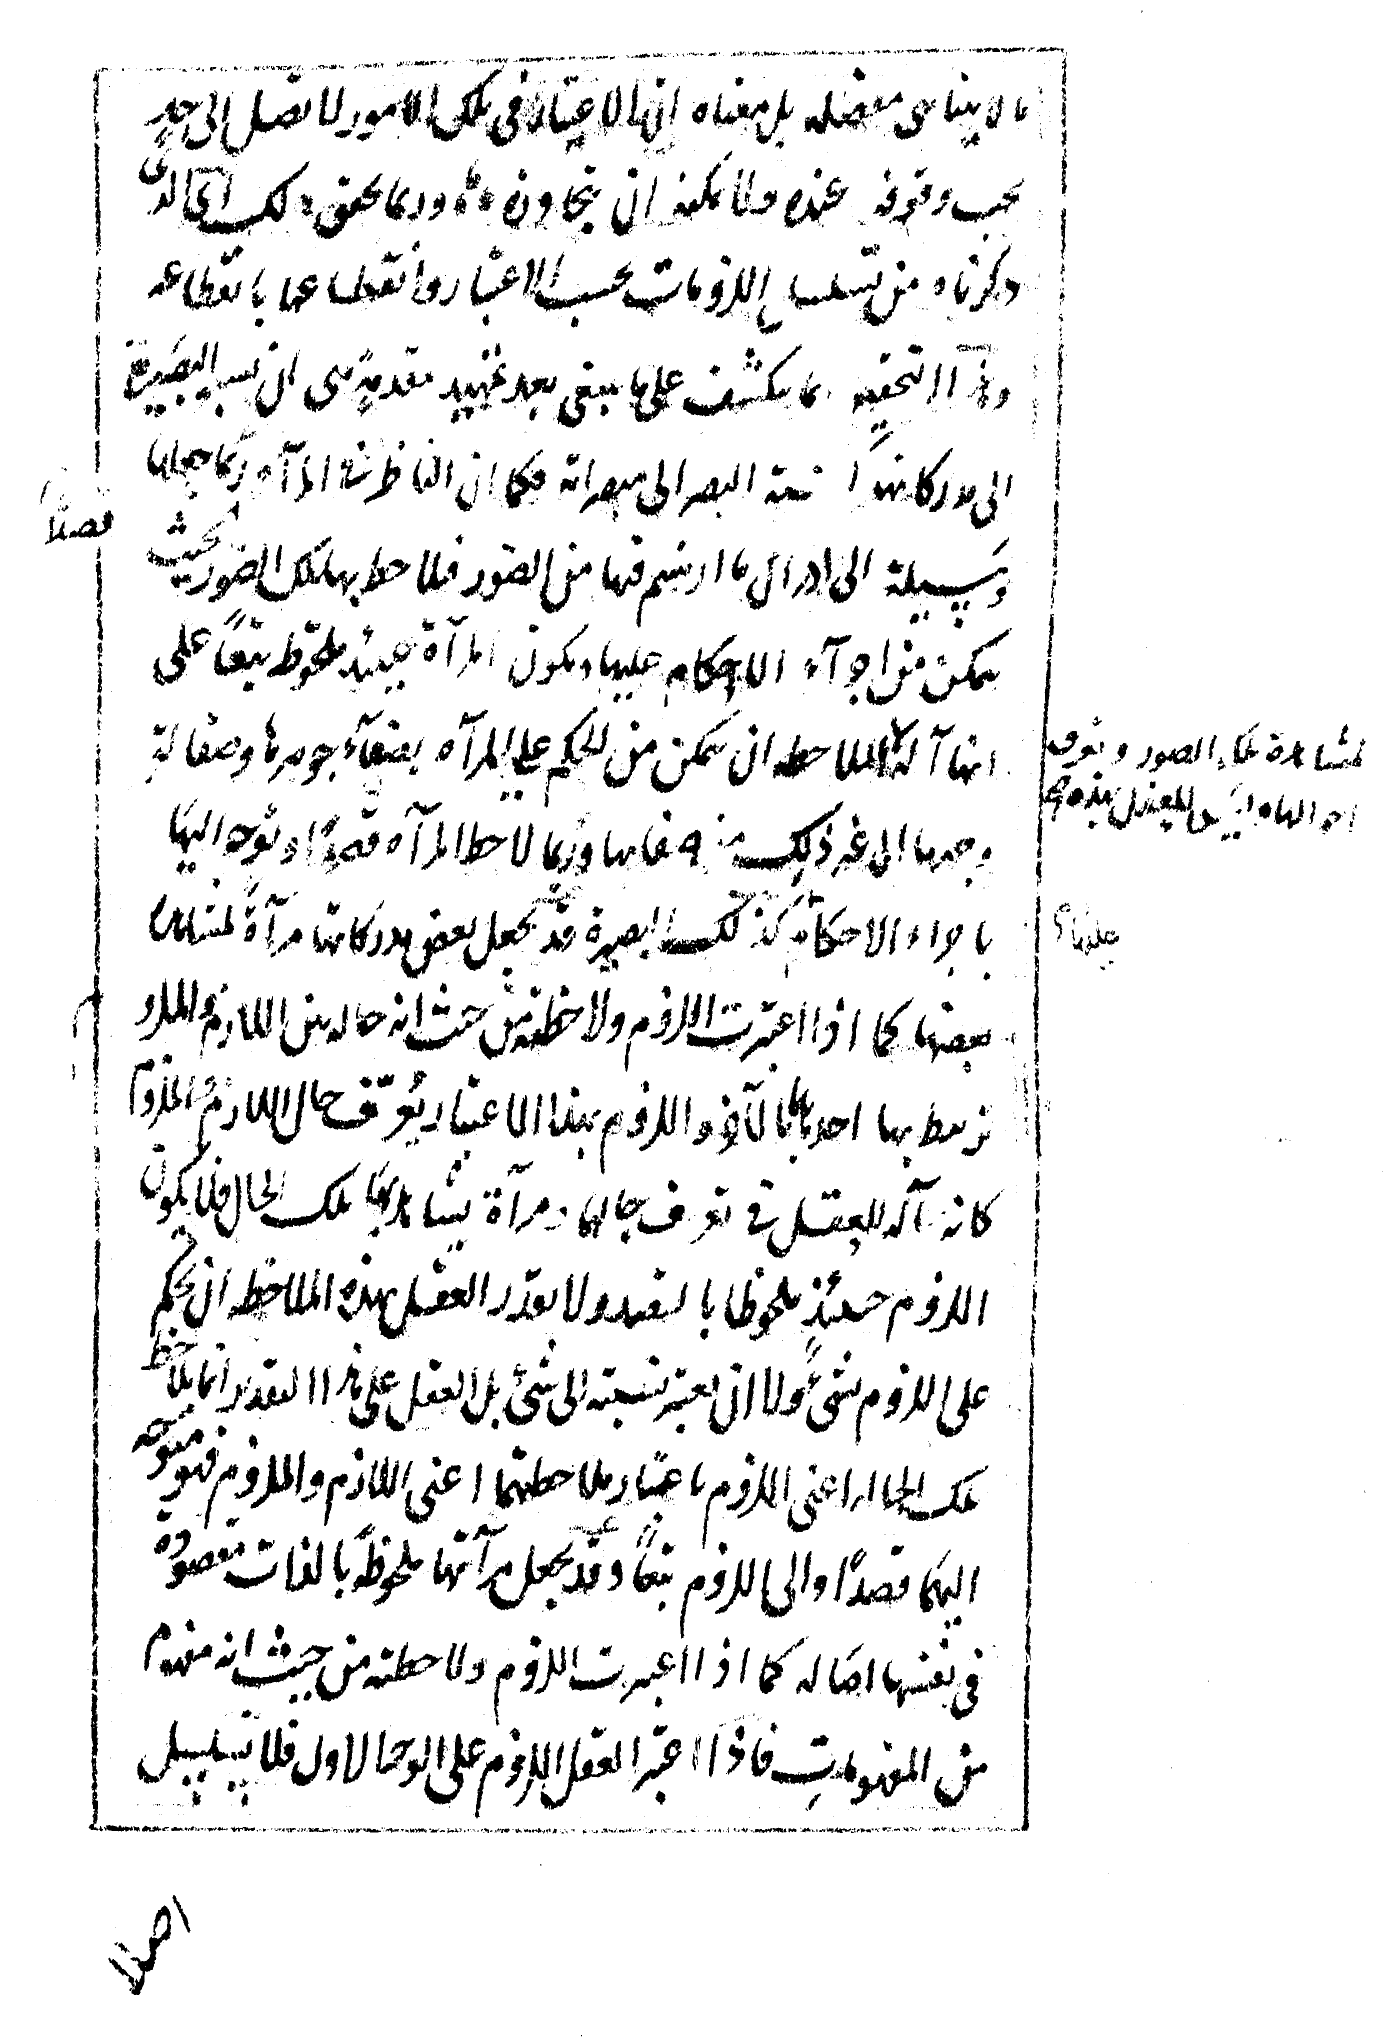 ما لا يتناهى مفصله بل معناه انها لا عتبار فى تلك الامور لا تصل الى حد
يجب وقوفه عنده ولا يمكنه ان يتجاوزه وربما يحقق ذلك الحال الذى
ذكرناه من تسلسل اللزومات بحسب الاعتبار وانقطاعها بانقطاعه
وهذا التحقيق مما ينكشف على ما ينبغى بعد تمهيد مقدمة هى ان نسبة البصيرة
الى مدركاتها نسبة البصر الى مبصراته فكما ان الناظر فى المرآة ربما جعلها
وسيلة الى ادراك ما ارتسم فيها من الصور فيلاحظ بها تلك الصور بحيث
يتمكن من اجرآء الاحكام عليها ويكون المرآة حينئذ ملحوظة تبعًا على
انها آلة لملاحظه ان يتمكن من الحكم على المرآه بصفآء جوهرها وصقالة
وجهها الى غير ذلك من صفاتها وربما لاحظ المرآه قصدًا وتوجه اليها
باجراء الاحكام كذلك البصيرة قد تجعل بعض مدركاتها مرآة لمشاهدة
بعضها كما اذا اعتبرت اللزوم ولاحظته من حيث انه حاله بين اللازم والملزوم
ترتبط بها احدهما بالآخر واللزوم بهذا الاعتبار يُعرّف حال اللازم والملزوم
كانه آله للعقل فى تعرف حالهما ومرآة يشاهد بها تلك الحال فلا يكون
اللزوم حينئذٍ ملحوظا بالقصد ولا يقدر العقل بهذه الملاحظه ان يحكم
على اللزوم بشئ ولا ان يعتبر نسبته الى شئ بل العقل على هذا التقدير انما يلاحظ
تلك الحاله اعنى اللزوم باعتبار ملاحظتهما اعنى اللازم والملزوم فهو متوجه
اليهما قصدًا والى اللزوم تبعًا وقد يجعل مرآتها ملحوظة بالذات مقصودة
فى نفسها اصاله كما اذا اعتبرت اللزوم ولاحظته من حيث انه مفهوم
من المفهومات فاذا اعتبر العقل اللزوم على الوجه الاول فلا تسلسل
قصدًا
لمشاهدة تلك الصور وتعرف
احوالها وليس للعقل بهذه
جعلها
اصلا